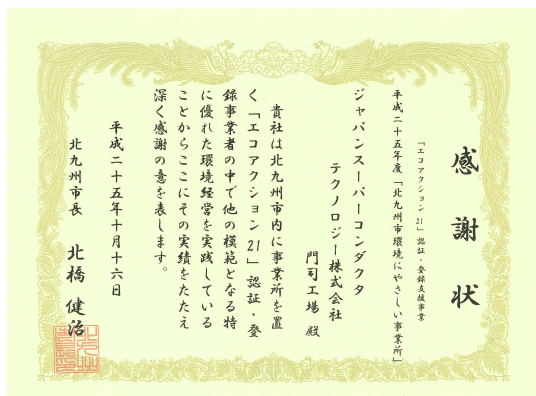 感謝状
「エコアクション21」認証・登録支援事業
平成二十五年度「北九州市環境にやさしい事業所」
ジャパンスーパーコンダクタ
テクノロジー株式会社
門司工場 殿
貴社は北九州市内に事業所を置
く「エコアクション21」認証・登
録事業者の中で他の模範となる特
に優れた環境経営を実践している
ことからここにその実績をたたえ
深く感謝の意を表します。
平成二十五年十月十六日
北九州市長 北橋 健治